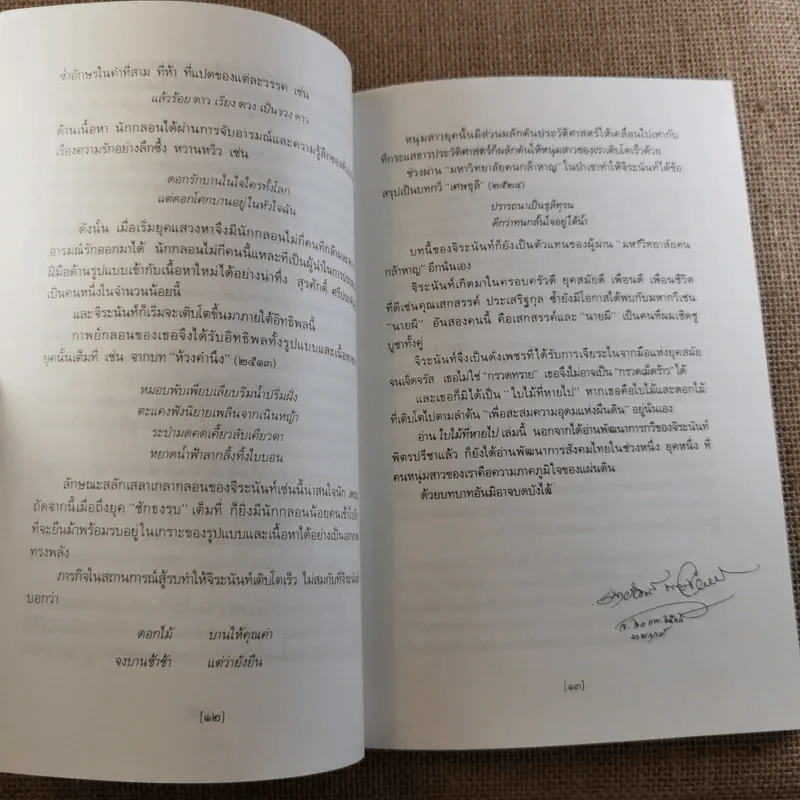 ซ้ำอักษรในคำที่สาม ที่ห้า ที่แปดของแต่ละวรรค เช่น
แล้วร้อย ดาว เรียง ดวง เป็นรวง ดาว
ด้านเนื้อหา นักกลอนได้ผ่านการจับอารมณ์และความรู้สึกของ
เรื่องความรักอย่างลึกซึ้ง หวานหวิว เช่น
ดอกรักบานในใจใครทั้งโลก
แต่ดอกโศกบานอยู่ในหัวใจฉัน
ดังนั้น เมื่อเริ่มยุคแสวงหาจึงมีนักกลอนไม่กี่คนที่กล้าและ
อารมณ์รักออกมาได้ นักกลอนไม่กี่คนนี้แหละที่เป็นผู้นำในการ
ฝีมือด้านรูปแบบเข้ากับเนื้อหาใหม่ได้อย่างน่าทึ่ง สุรศักดิ์
เป็นคนหนึ่งในจำนวนน้อยนี้
และจิระนันท์ก็เริ่มจะเติบโตขึ้นมาภายใต้อิทธิพลนี้
กาพย์กลอนของเธอจึงได้รับอิทธิพลทั้งรูปแบบและเนื้อหา
ยุคนั้นเต็มที่ เช่น จากบท "ห้วงคำนึง" (๒๕๑๓)
หมอบพับเพียบเลียบริมน้ำปริ่มฝั่ง
ตะแคงฟังนิยายเพลินจากเนินหญ้า
ระบำมดคดเคี้ยวลับเคียวตา
หยาดน้ำฟ้าลากลิ้งทิ้งใบบอน
ลักษณะสลักเสลาเกลากลอนของจิระนันท์เช่นนี้น่าสนใจนัก
ถัดจากนี้เมื่อถึงยุค "ชักธงรบ" เต็มที่ ก็ยิ่งมีนักกลอนน้อยคน
ที่จะยืนม้าพร้อมรบอยู่ในเกราะของรูปแบบและเนื้อหาได้อย่างเป็น
ทรงพลัง
ภารกิจในสถานการณ์สู้รบทำให้จิระนันท์เติบโตเร็ว ไม่สมกับที่
บอกว่า
ดอกไม้ บานให้คุณค่า
จงบานช้าช้า แต่ว่ายั่งยืน
[๑๒]
หนุ่มสาวยุคนั้นมีส่วนผลักดันประวัติศาสตร์ให้เคลื่อนไปเท่ากับ
ที่กระแสธารประวัติศาสตร์ก็ผลักดันให้หนุ่มสาวของเราเติบโตเร็วด้วย
ช่วงผ่าน "มหาวิทยาลัยคนกล้าหาญ" ในป่าเขาทำให้จิระนันท์ได้ข้อ
สรุปเป็นบทกวี "เศษธุลี" (๒๕๒๔)
ปรารถนาเป็นธุลีทุรน
ดีกว่าทนกลั้นใจอยู่ใต้น้ำ
บทนี้ของจิระนันท์ก็ยังเป็นตัวแทนของผู้ผ่าน "มหาวิทยาลัยคน
กล้าหาญ" อีกนั่นเอง
จิระนันท์เกิดมาในครอบครัวดี ยุคสมัยดี เพื่อนดี เพื่อนชีวิต
ที่ดีเช่นคุณเสกสรรค์ ประเสริฐกุล ซ้ำยังมีโอกาสได้พบกับมหากวีเช่น
"นายผี" อันสองคนนี้ คือเสกสรรค์และ "นายผี" เป็นคนที่ผมเชิดชู
บูชาทั้งคู่
จิระนันท์จึงเป็นดั่งเพชรที่ได้รับการเจียระไนจากมือแห่งยุคสมัย
จนเจิดจรัส เธอไม่ใช่ "กรวดทราย" เธอจึงไม่อาจเป็น "กรวดเม็ดร้าว" ได้
และเธอก็มิได้เป็น "ใบไม้ที่หายไป" หากเธอคือใบไม้และดอกไม้
ที่เติบโตไปตามลำต้น "เพื่อสะสมความอุดมแห่งผืนดิน" อยู่นั่นเอง
อ่าน ใบไม้ที่หายไป เล่มนี้ นอกจากได้อ่านพัฒนาการกวีของจิระนันท์
พิตรปรีชาแล้ว ก็ยังได้อ่านพัฒนาการสังคมไทยในช่วงหนึ่ง ยุคหนึ่ง ที่
คนหนุ่มสาวของเราคือความภาคภูมิใจของแผ่นดิน
ด้วยบทบาทอันมิอาจบดบังได้
[๑๓]